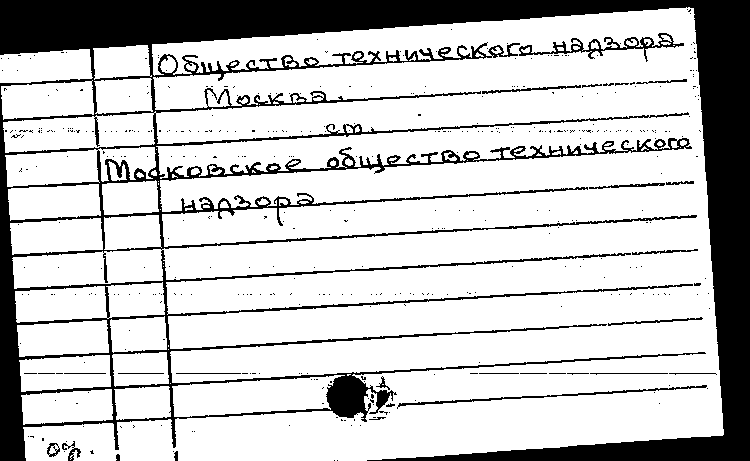 Общество технического надзора
Москва.
см.
Московское общество технического
надзора